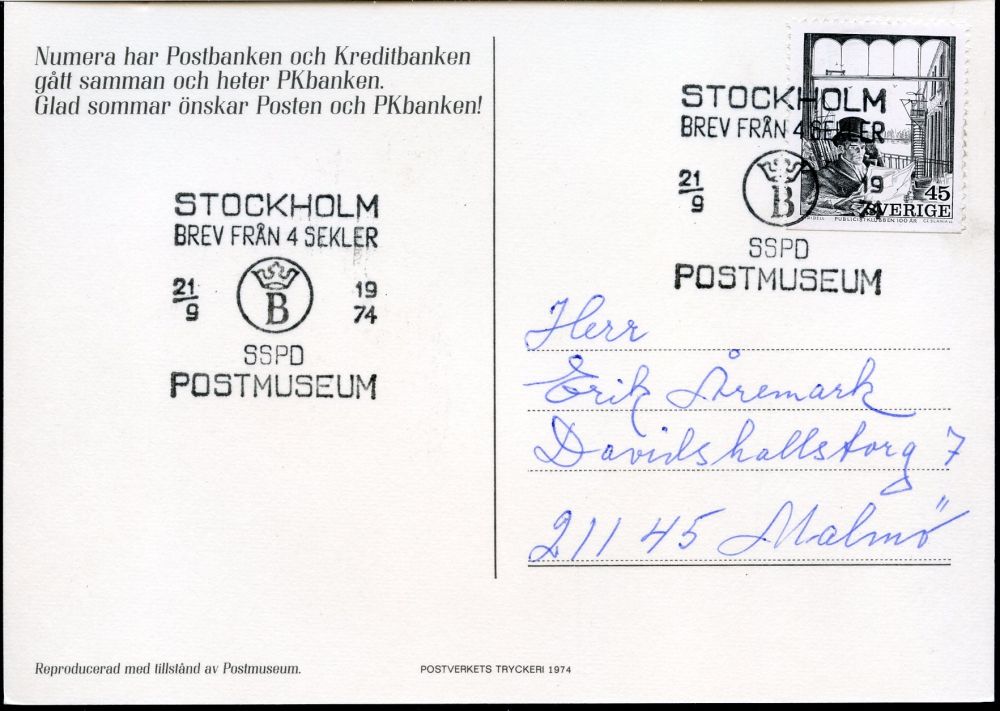 Numera har Postbanken och Kreditbanken
gått samman och heter PKbanken.
Glad sommar önskar Posten och PKbanken!
STOCKHOLM
BREV FRÅN 4 SEKLER
21/9 B 19 74
SSPD
POSTMUSEUM
STOCKHOLM
BREV FRÅN 4 SEKLER
21/9 B 19 74
SSPD
POSTMUSEUM
45
SVERIGE
PUBLICISTKLUBBEN 100 ÅR
Herr
Erik Åremark
Davidshallstorg 7
211 45 Malmö
Reproducerad med tillstånd av Postmuseum.
POSTVERKETS TRYCKERI 1974